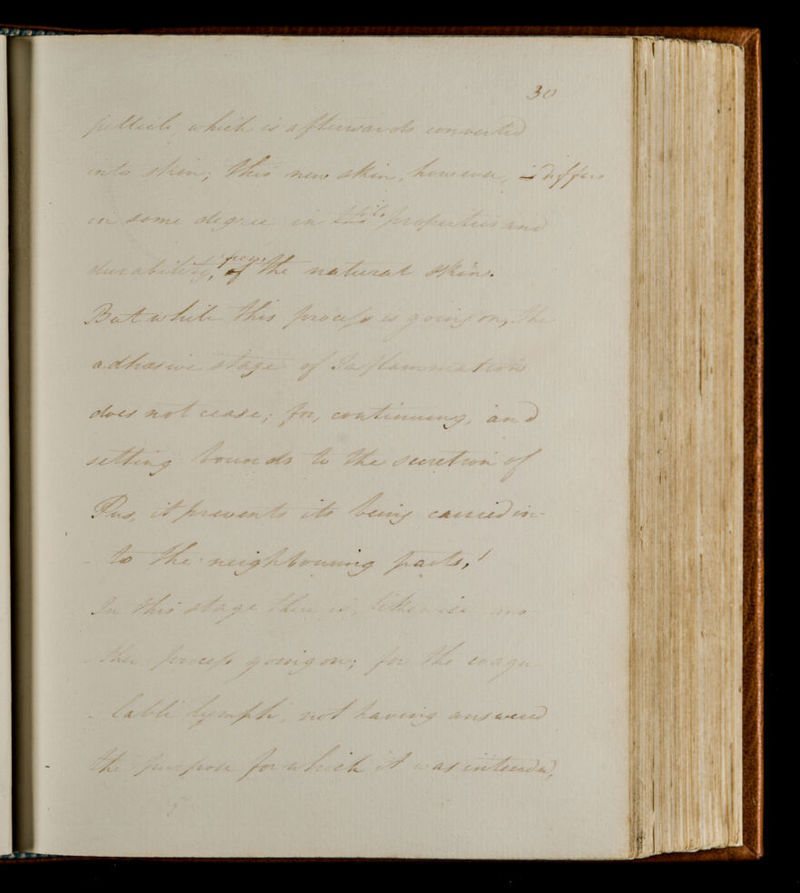 30
pellicle which is afterwards converted
into skin; this new skin, however, differs
in some degree in its properties and
durability, from of the natural skin.
But while this process is going on, the
adhesive stage of Inflammation
does not cease; for, continuing, and
setting bounds to the secretion of
Pus, it prevents its being carried in-
- to the neighbouring parts.
In this stage there is, likewise ano
- ther process going on; for the coagu
- lable lymph, not having answered
the purpose for which it was intended,